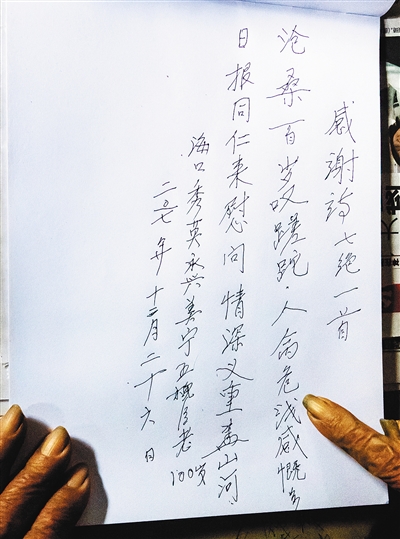 感谢诗七绝一首
沧桑百岁叹蹉跎·人命危浅感慨多
日报同仁来慰问情深义重盖山河
海口秀英永兴美宁老100岁
二〇一七年十二月二十六日